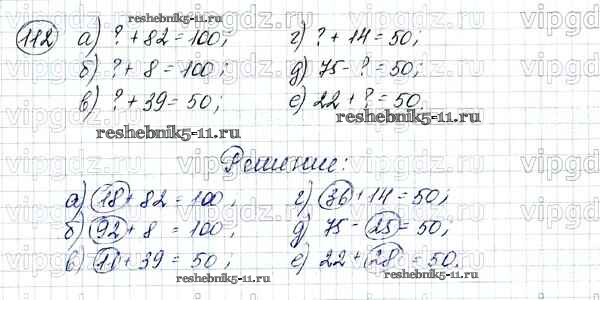 reshebnik5-11.ru
112 а) ? + 82 = 100; г) ? + 14 = 50;
б) ? + 8 = 100; д) 75 - ? = 50;
в) ? + 39 = 50; е) 22 + ? = 50.
reshebnik5-11.ru reshebnik5-11.ru
Решение:
а) 18 + 82 = 100; г) 36 + 14 = 50;
б) 92 + 8 = 100; д) 75 - 25 = 50;
в) 11 + 39 = 50; е) 22 + 28 = 50.
reshebnik5-11.ru reshebnik5-11.ru